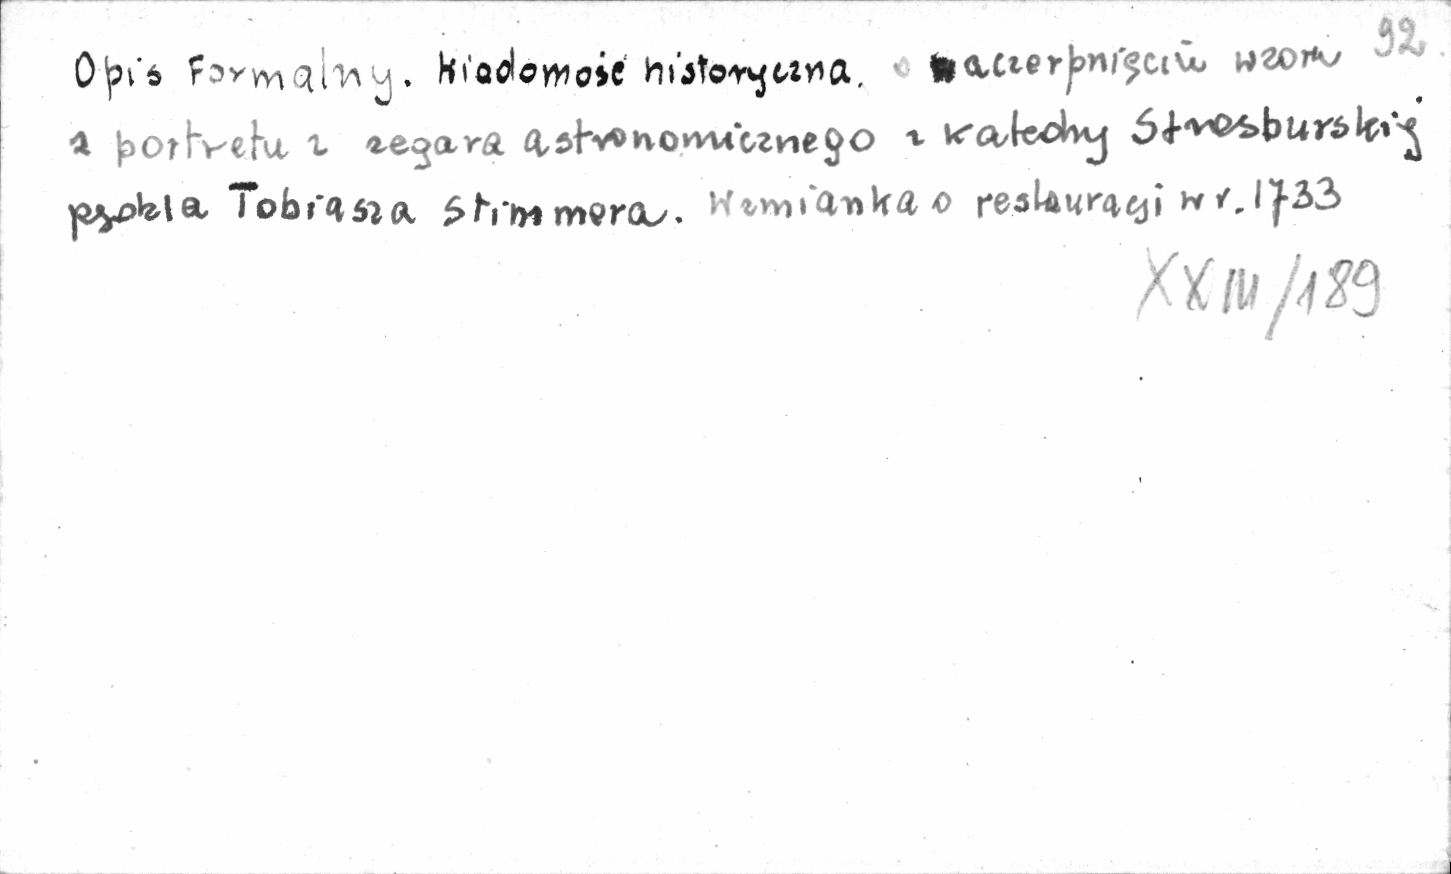 92
Opis Formalny. Wiadomość historyczna. o zaczerpnięciu wzoru
z portretu z zegara astronomicznego z Katedry Strasburskiej
pędzla Tobiasza Stimmera. Wzmianka o restauracji w r. 1733
XXIII/189